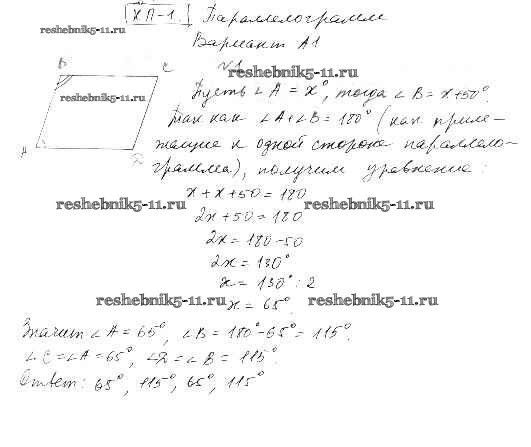 КП-1. Параллелограмм
reshebnik5-11.ru
Вариант А1
№1
reshebnik5-11.ru
B C
Пусть ∠A = x°, тогда ∠B = x+50°.
reshebnik5-11.ru
Так как ∠A+∠B = 180° (как приле-
жащие к одной стороне параллело-
A D
грамма), получим уравнение:
x + x + 50 = 180
reshebnik5-11.ru reshebnik5-11.ru
2x + 50 = 180
2x = 180 - 50
2x = 130°
x = 130° : 2
reshebnik5-11.ru reshebnik5-11.ru
x = 65°.
Значит ∠A = 65°, ∠B = 180° - 65° = 115°.
∠C = ∠A = 65°, ∠D = ∠B = 115°.
Ответ: 65°, 115°, 65°, 115°